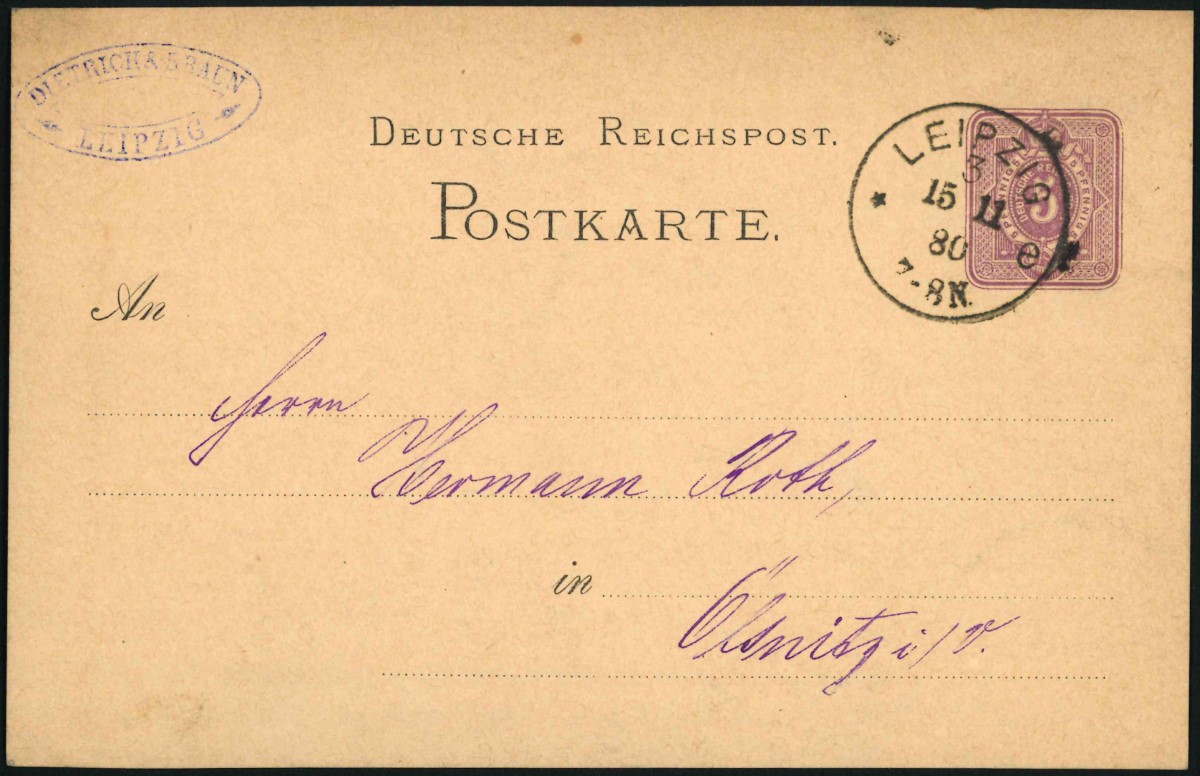 DIETRICH & BRAUN
LEIPZIG
DEUTSCHE REICHSPOST.
POSTKARTE.
LEIPZIG
3
15 11
80 e
7-8N.
5 PFENNIG 5 PFENNIG
DEUTSCHE
5
An
Herrn
Hermann Roth,
in
Ölsnitz i/v.